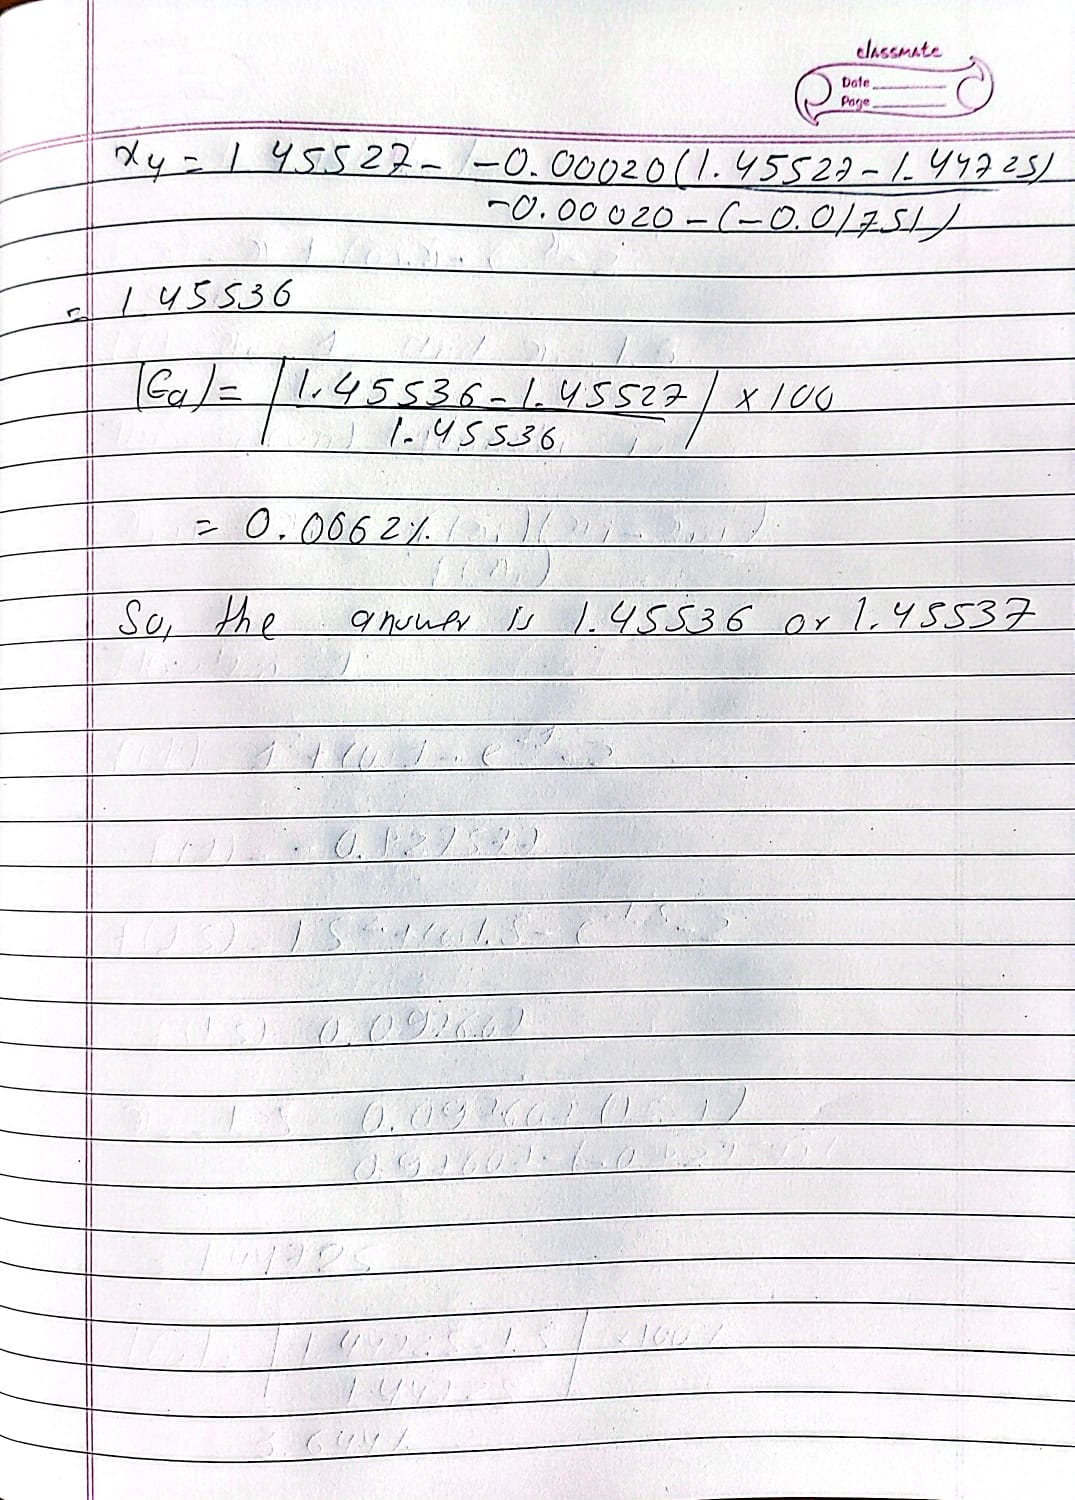 classmate
Date
Page
x4 = 1.45527 - -0.00020(1.45527-1.44725)
-0.00020-(-0.01751)
= 1.45536
|Ea| = |1.45536-1.45527| × 100
1.45536
= 0.0062%.
So, the answer is 1.45536 or 1.45537